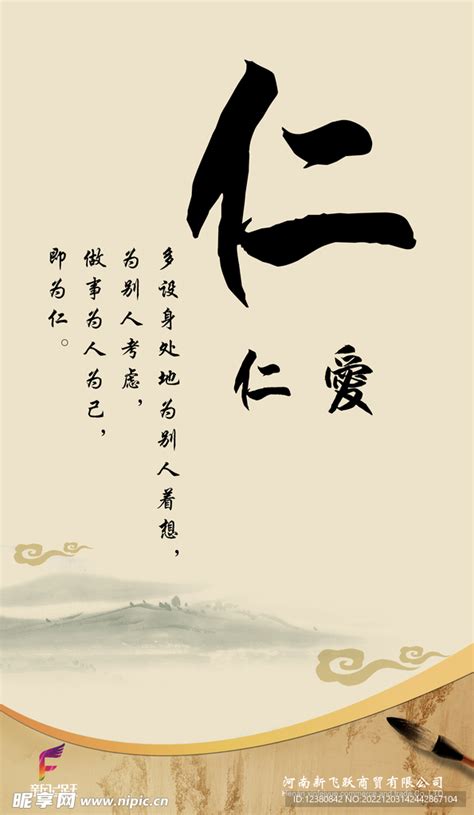 仁
仁愛
多设身处地为别人着想，
为别人考虑，
做事为人为己，
即为仁。
新飞跃
河南新飞跃商贸有限公司
昵享网 www.nipic.cn
ID:12380842 NO:20221203142442867104